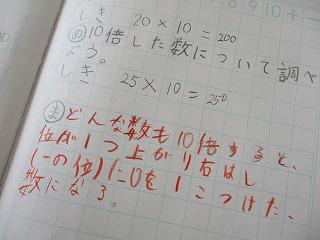 8 9 10 + −
しき 20 × 10 = 200
め 10倍した数について調べ
よう。
しき 25 × 10 = 250
ま どんな数も10倍すると、
位が1つ上がり右はし
(一の位)に0を1こつけた、
数になる。